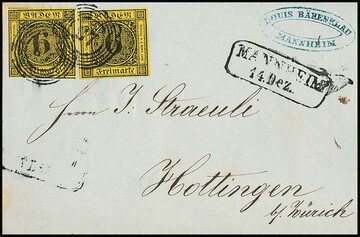 BADEN
6
Freimarte
BADEN
6
Freimarke
LOUIS BÄRENKLAU
MANNHEIM
MANNHEIM
14. Dez.
Herrn J. Straeuli
Hottingen
b/ Zürich